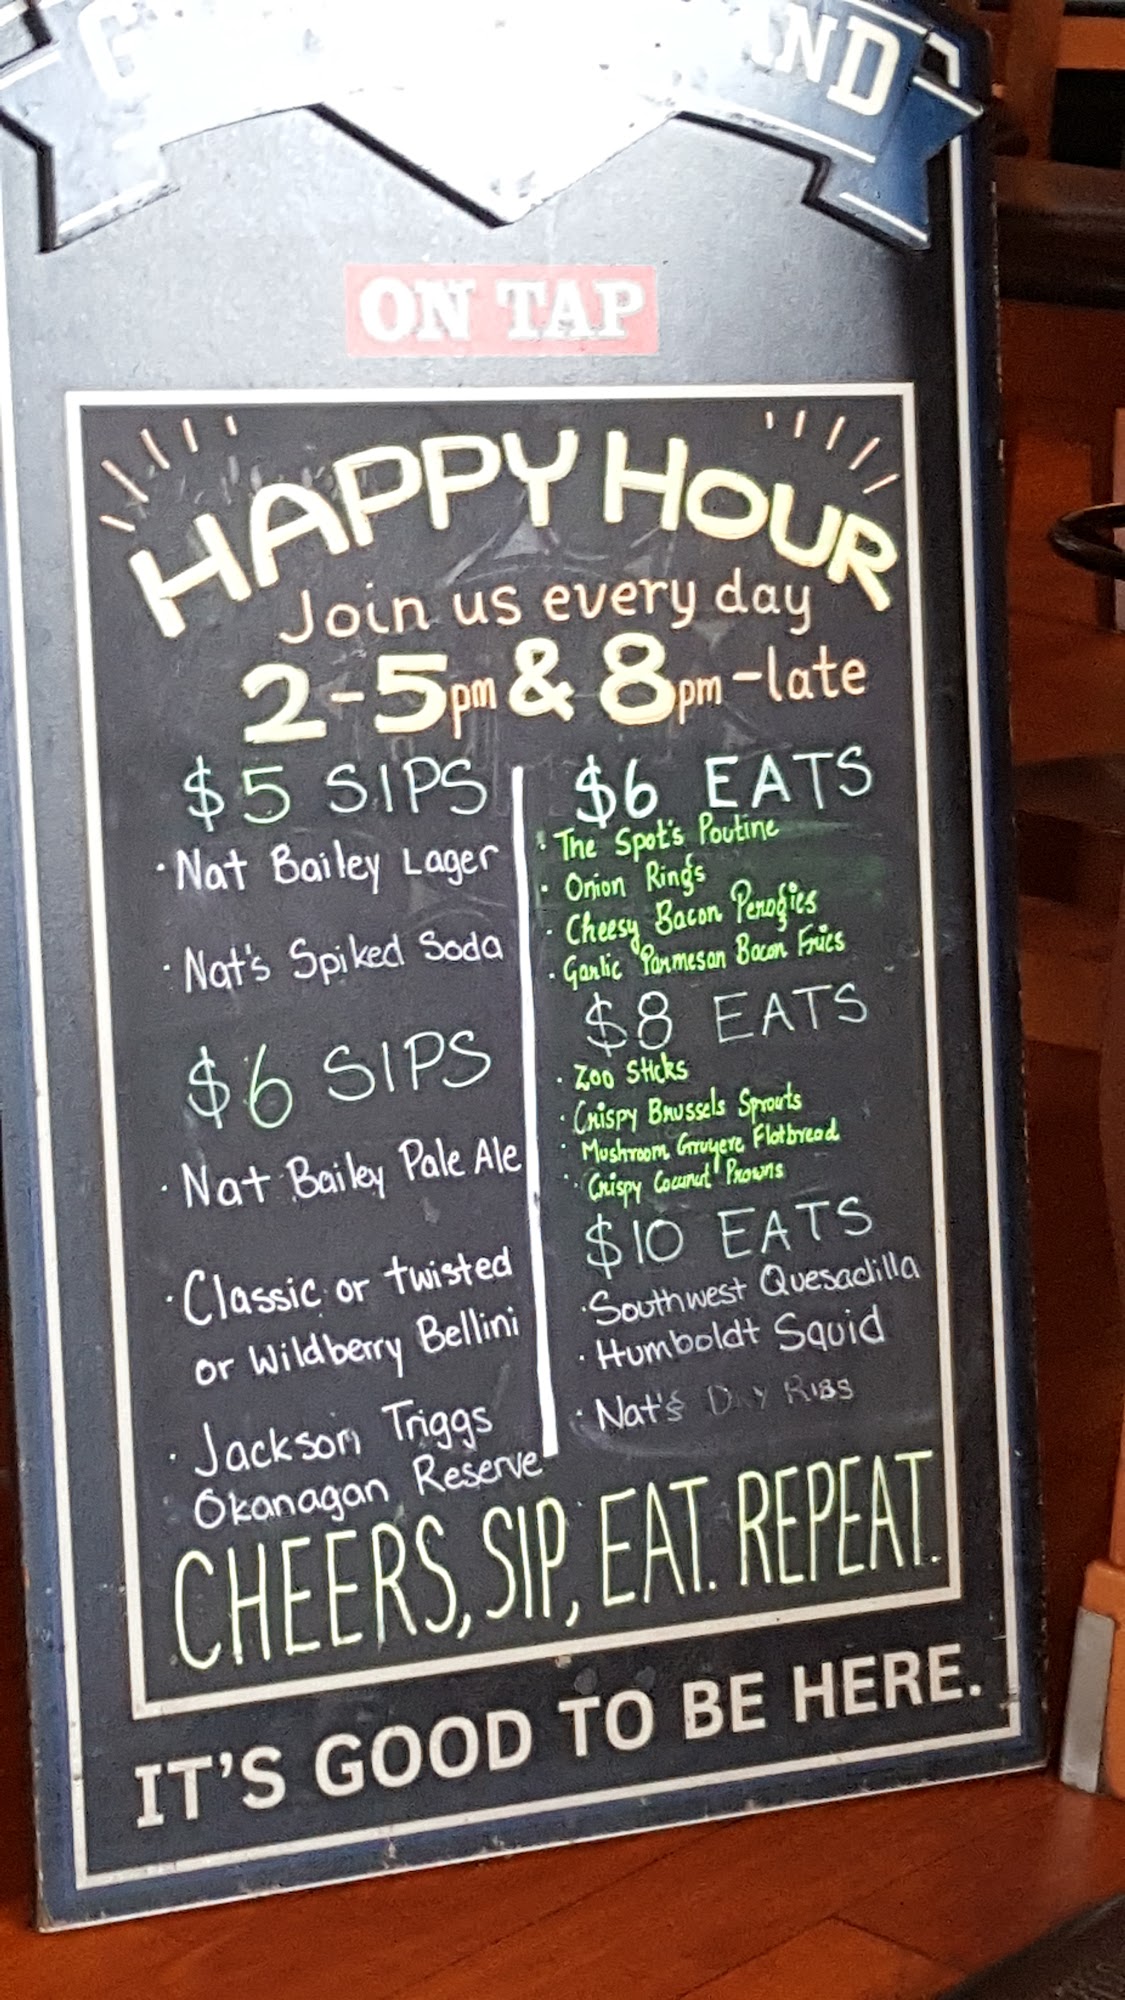 ON TAP
HAPPY HOUR
Join us every day
2-5pm & 8pm-late
$5 SIPS
· Nat Bailey Lager
· Nat's Spiked Soda
$6 SIPS
· Nat Bailey Pale Ale
· Classic or twisted
or Wildberry Bellini
· Jackson Triggs
Okanagan Reserve
$6 EATS
· The Spot's Poutine
· Onion Rings
· Cheesy Bacon Perogies
· Garlic Parmesan Bacon Fries
$8 EATS
· Zoo Sticks
· Crispy Brussels Sprouts
· Mushroom Gruyere Flatbread
· Crispy Coconut Prawns
$10 EATS
· Southwest Quesadilla
· Humboldt Squid
· Nat's Dry RIBS
CHEERS, SIP, EAT. REPEAT.
IT'S GOOD TO BE HERE.